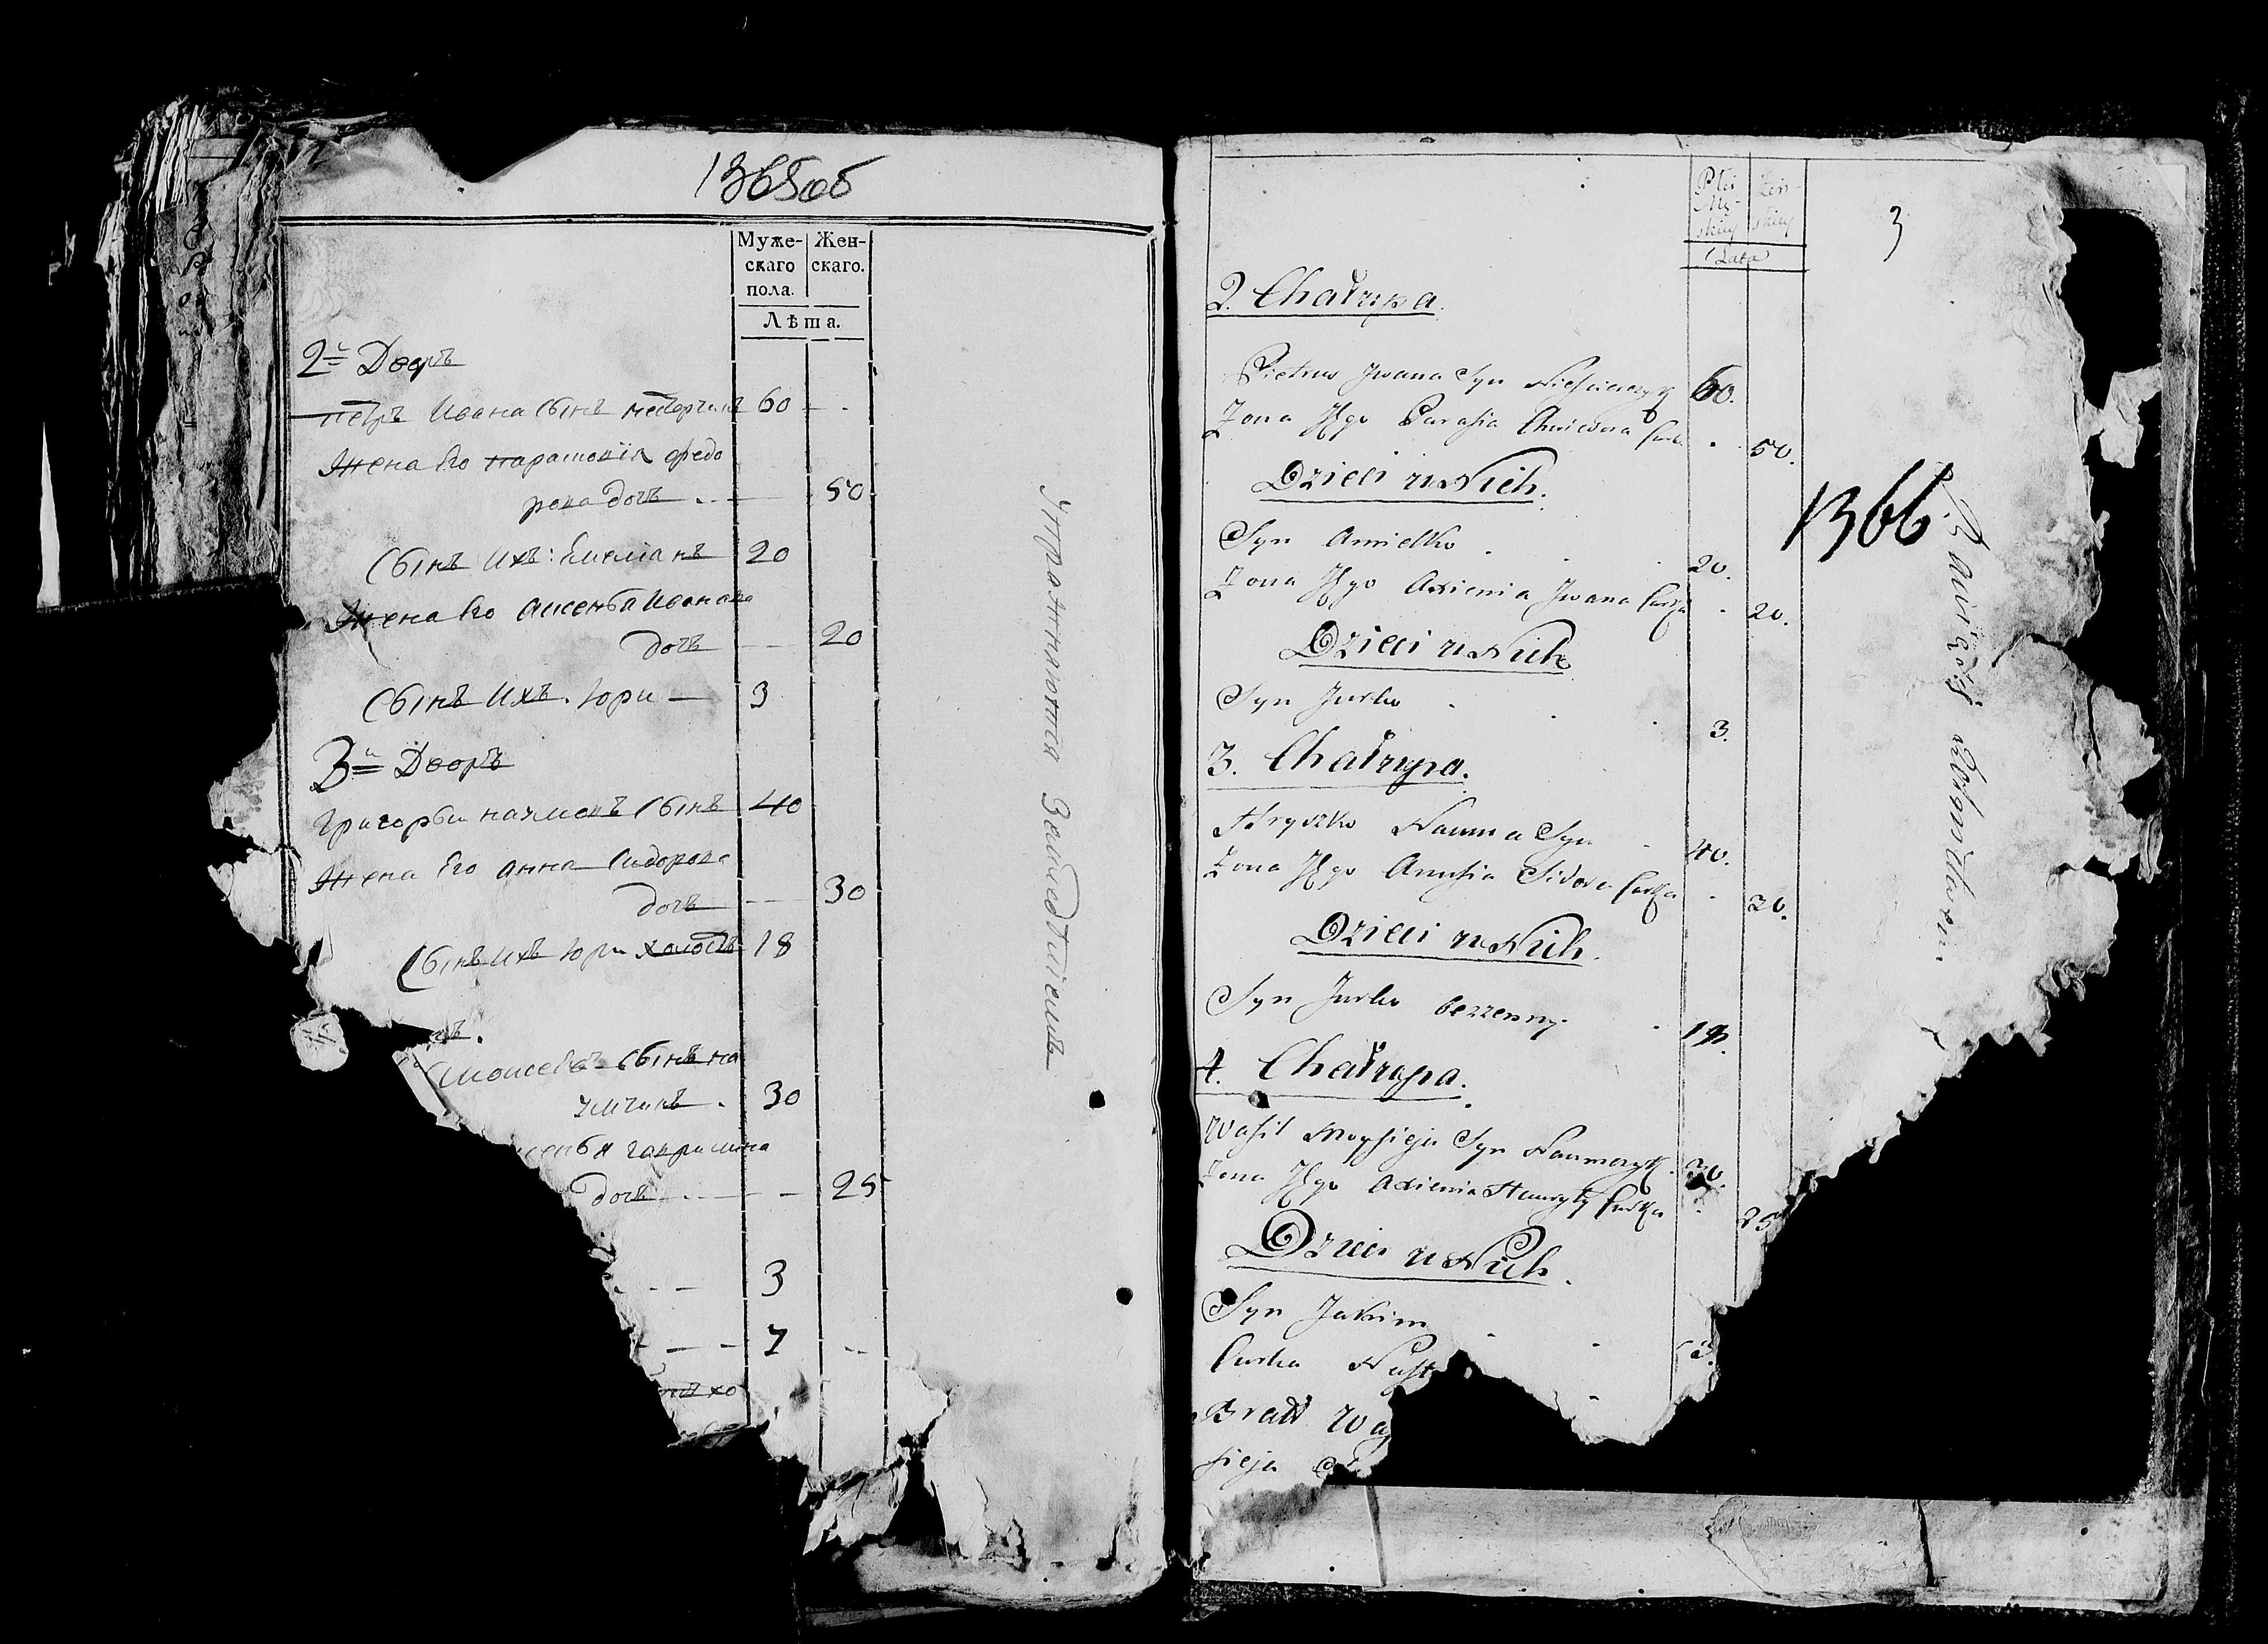 1365об
Муже-
скаго
пола.
Жен-
скаго.
Лѣта.
2й Дворъ
петръ Ивана Сынъ 60
Жена Его парасковія федо
рова дочь 50
Сынъ Ихъ: Емеліанъ 20
Жена Его аксенья Иванова
дочь 20
Сынъ Ихъ. Юри — 3
3й Дворъ
Григорьи наумовъ Сынъ 40
Жена Его анна Сидорова
дочь 30
Сынъ Ихъ Юри холостъ 18
ръ.
Моисеевъ Сынъ на
умчикъ . 30
сенья гаврилина
дочь 25
3
7
хо
Упражняются Земледѣліемъ
Płci
Mę-
skiey
Żeń-
skiey
Lata
3
2. Chałupa.
Pietruś Jwana Syn 60.
Żona Jego Parasia Chwiedora Curka 50.
Dzieci u Nich.
Syn Amielko 20.
Żona Jego Axienia Jwana Curka 20.
Dzieci u Nich
Syn Jurko 3.
3. Chałupa.
Hryszko Nauma Syn 40.
Żona Jego Anusia Sidora Curka 30.
Dzieci u Nich.
Syn Jurko bezzenny 18.
4. Chałupa.
Wasil Moysieja Syn Naumczyk. 30.
Żona Jego Axienia Hawryły Curka 25
Dzieci u Nich.
Syn Jakim 3.
Curka Nast
Bratt Wa
sieja S
1366